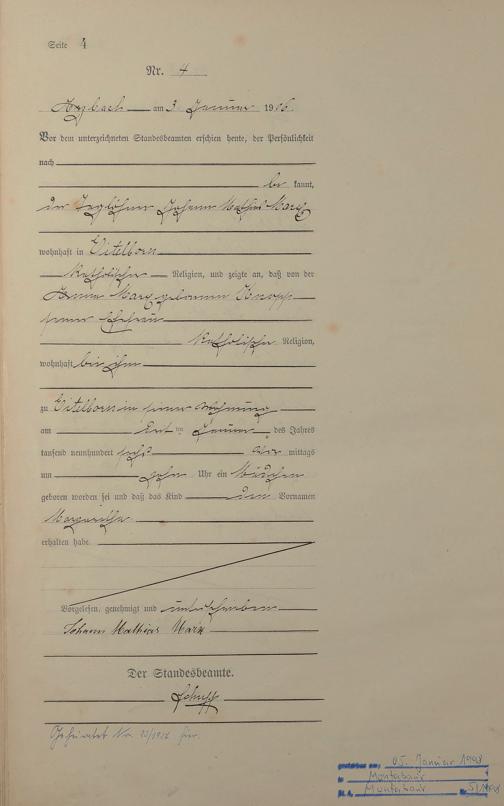 Seite 4
Nr. 4
Arzbach am 3 Januar 1906
Vor dem unterzeichneten Standesbeamten erschien heute, der Persönlichkeit
nach
be kannt,
der Taglöhner Johann Mathias Marx
wohnhaft in Eitelborn
katholischer Religion, und zeigte an, daß von der
Marx geborenen Knopp
seiner Ehefrau
katholischer Religion,
wohnhaft bei ihm
zu Eitelborn in seiner Wohnung
am ten Januar des Jahres
tausend neunhundert sechs mittags
um zehn Uhr ein Mädchen
geboren worden sei und daß das Kind den Vornamen
Margaretha
erhalten habe.
Vorgelesen, genehmigt und unterschrieben
Johann Mathias Marx
Der Standesbeamte.
Schupp
Geheiratet No. hier.
gestorben am: 05. Januar 1998
in Montabaur
St. A. Montabaur Nr. 5/1998